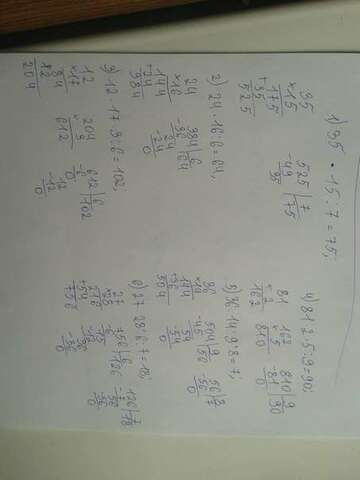 1) 35 · 15 : 7 = 75;
35 525 | 7
×15 -49 75
175 35
+35
525
2) 24 · 16 : 6 = 64;
24 384 | 6
×16 -36 64
144 24
+24 -24
384 0
3) 12 · 17 · 3 : 6 = 102;
12 204 612 | 6
×17 ×3 -6 102
84 612 12
+12 -12
204 0
4) 81·2·5:9=90;
81 162 810 | 9
×2 ×5 -81 90
162 810 0
5) 36·14:9:8=7;
36 504 | 9 56 | 8
×14 -45 -56 7
144 54 0
+36 -54
504 0
6) 27·28:6:7=18;
27 756 | 6 126 | 7
×28 -6 126 -7 18
216 15 56
+54 -12 -56
756 36 0
-36
0